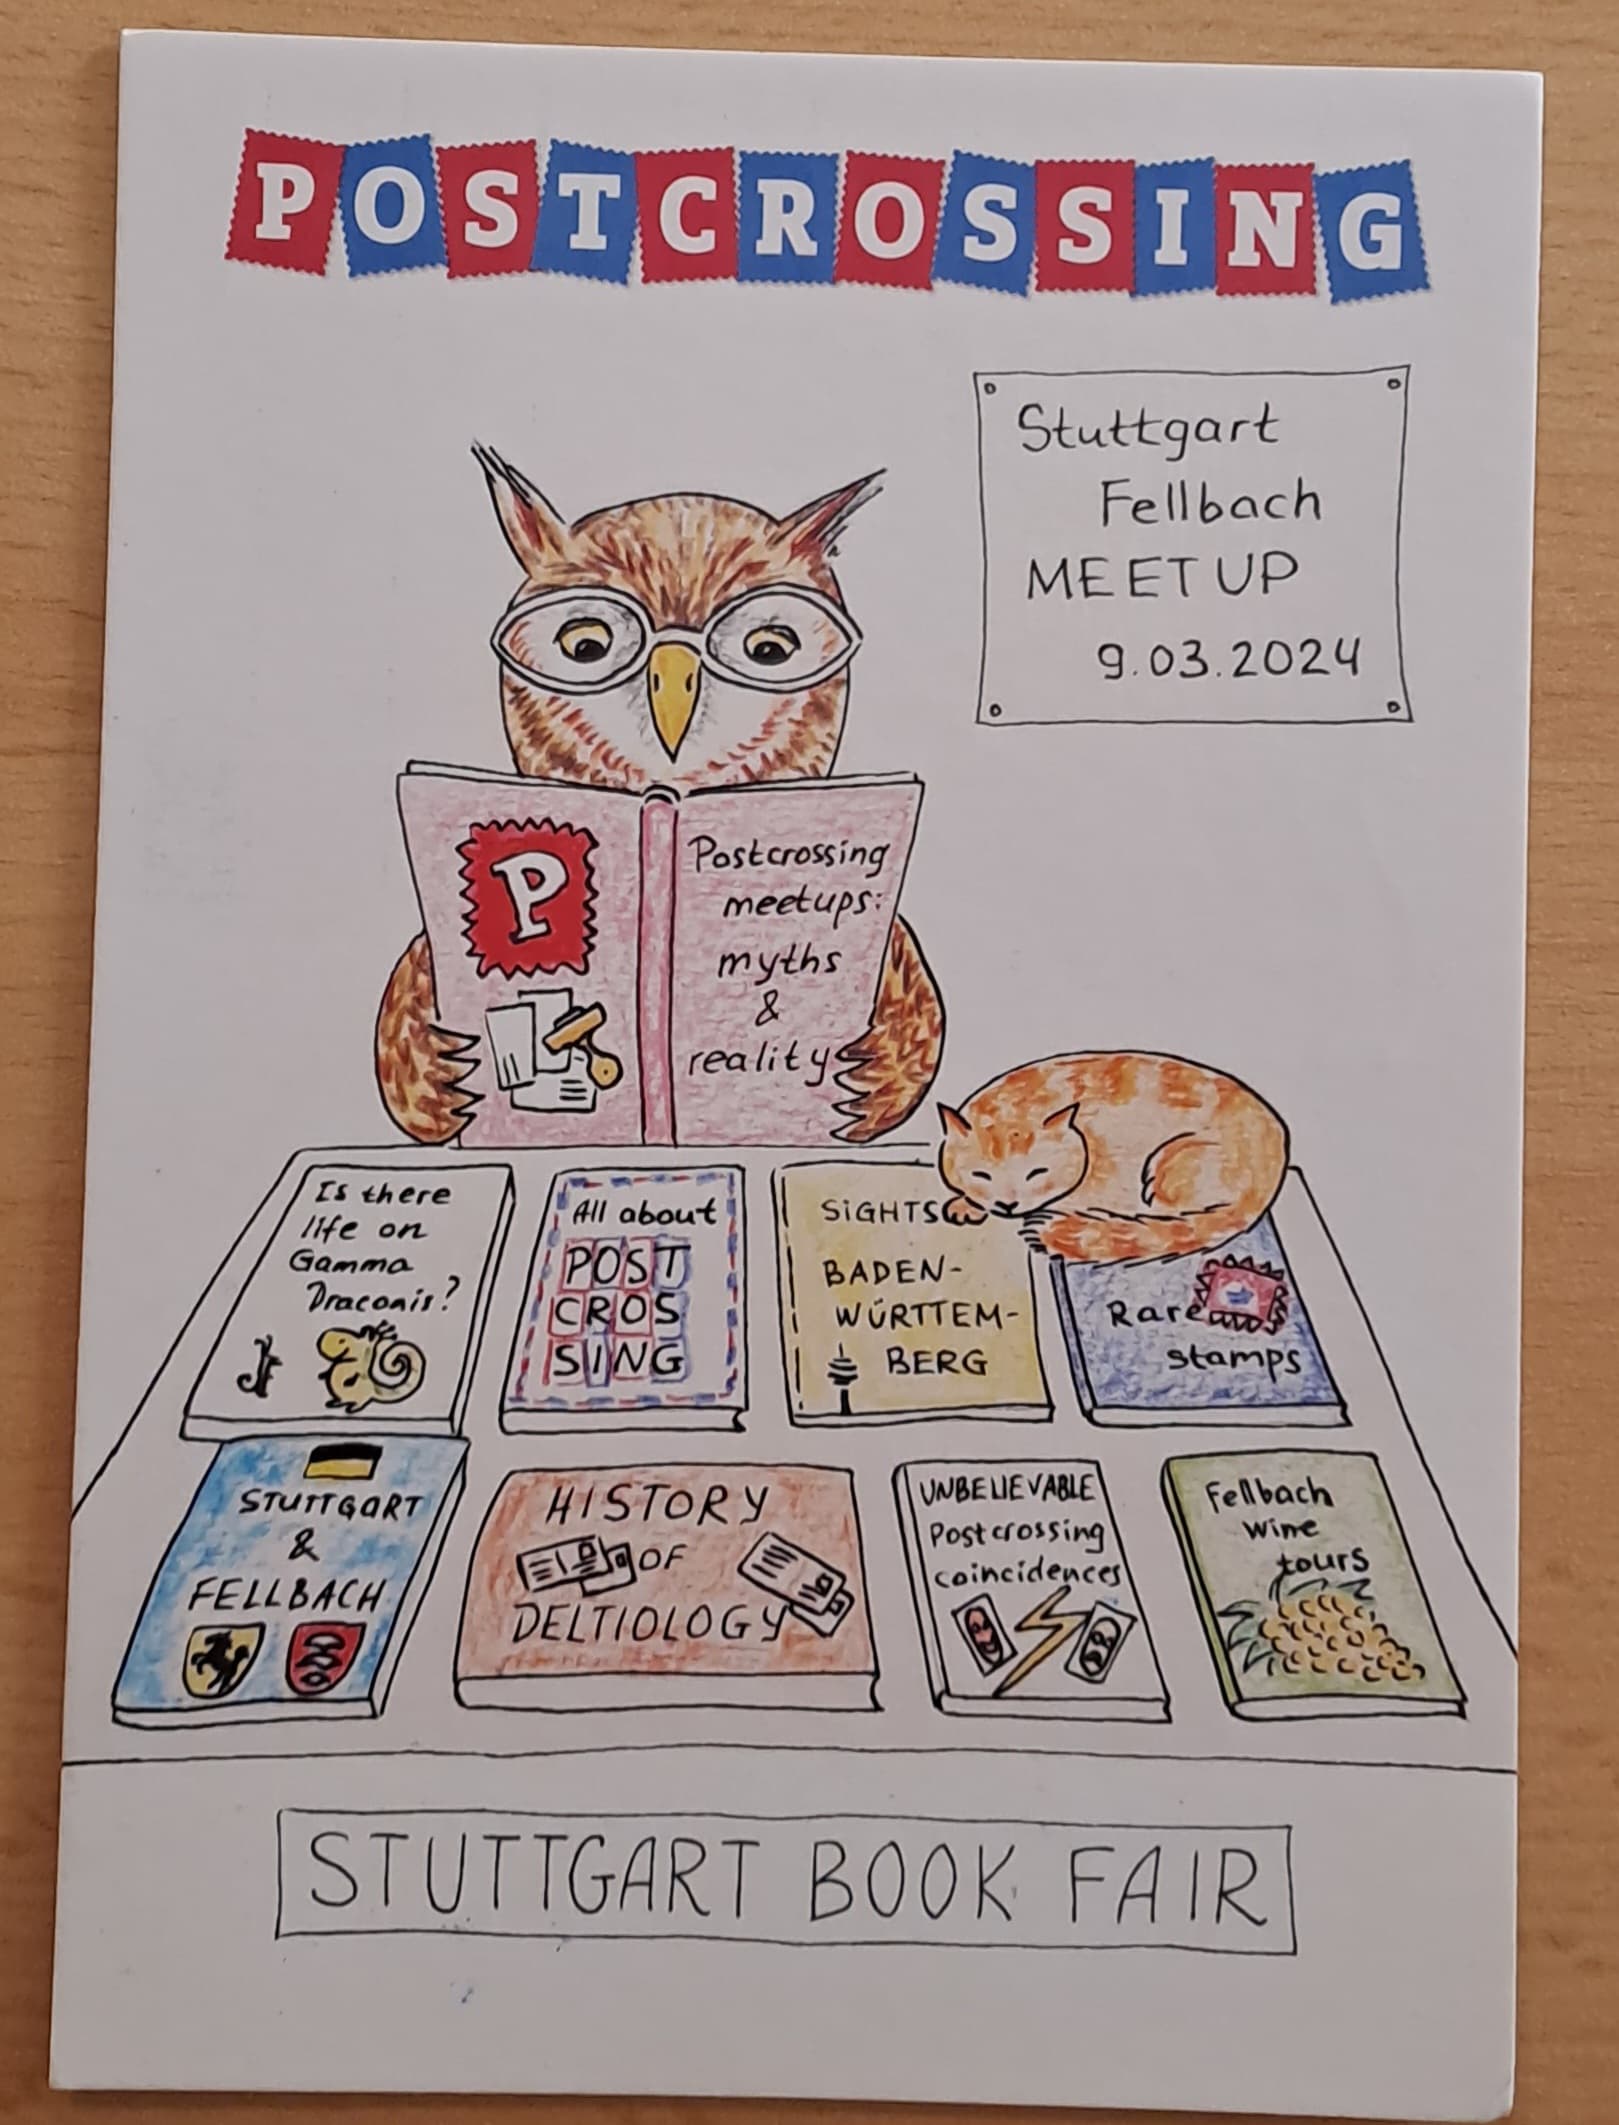 POSTCROSSING
Stuttgart
Fellbach
MEETUP
9.03.2024
P
Postcrossing
meetups:
myths
&
reality
Is there
life on
Gamma
Draconis?
All about
POST
CROS
SING
SIGHTS
BADEN-
WÜRTTEM-
BERG
Rare
stamps
STUTTGART
&
FELLBACH
HISTORY
OF
DELTIOLOGY
UNBELIEVABLE
Postcrossing
coincidences
Fellbach
wine
tours
STUTTGART BOOK FAIR